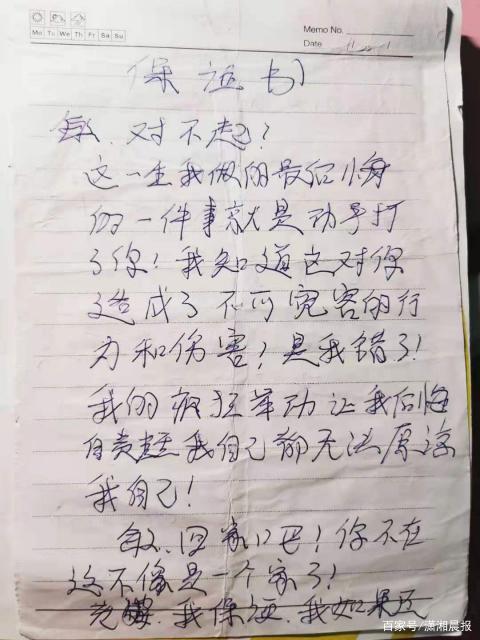 Memo No.
Mo Tu We Th Fr Sa Su
Date
保证书
敏、对不起！
这一生我做的最后悔
的一件事就是动手打
了你！我知道这对你
造成了不可宽容的行
为和伤害！是我错了！
我的疯狂举动让我后悔
自责 我自己都无法原谅
我自己！
敏、回家吧！你不在
这不像是一个家了！
我保证、我如果还
百家号/潇湘晨报